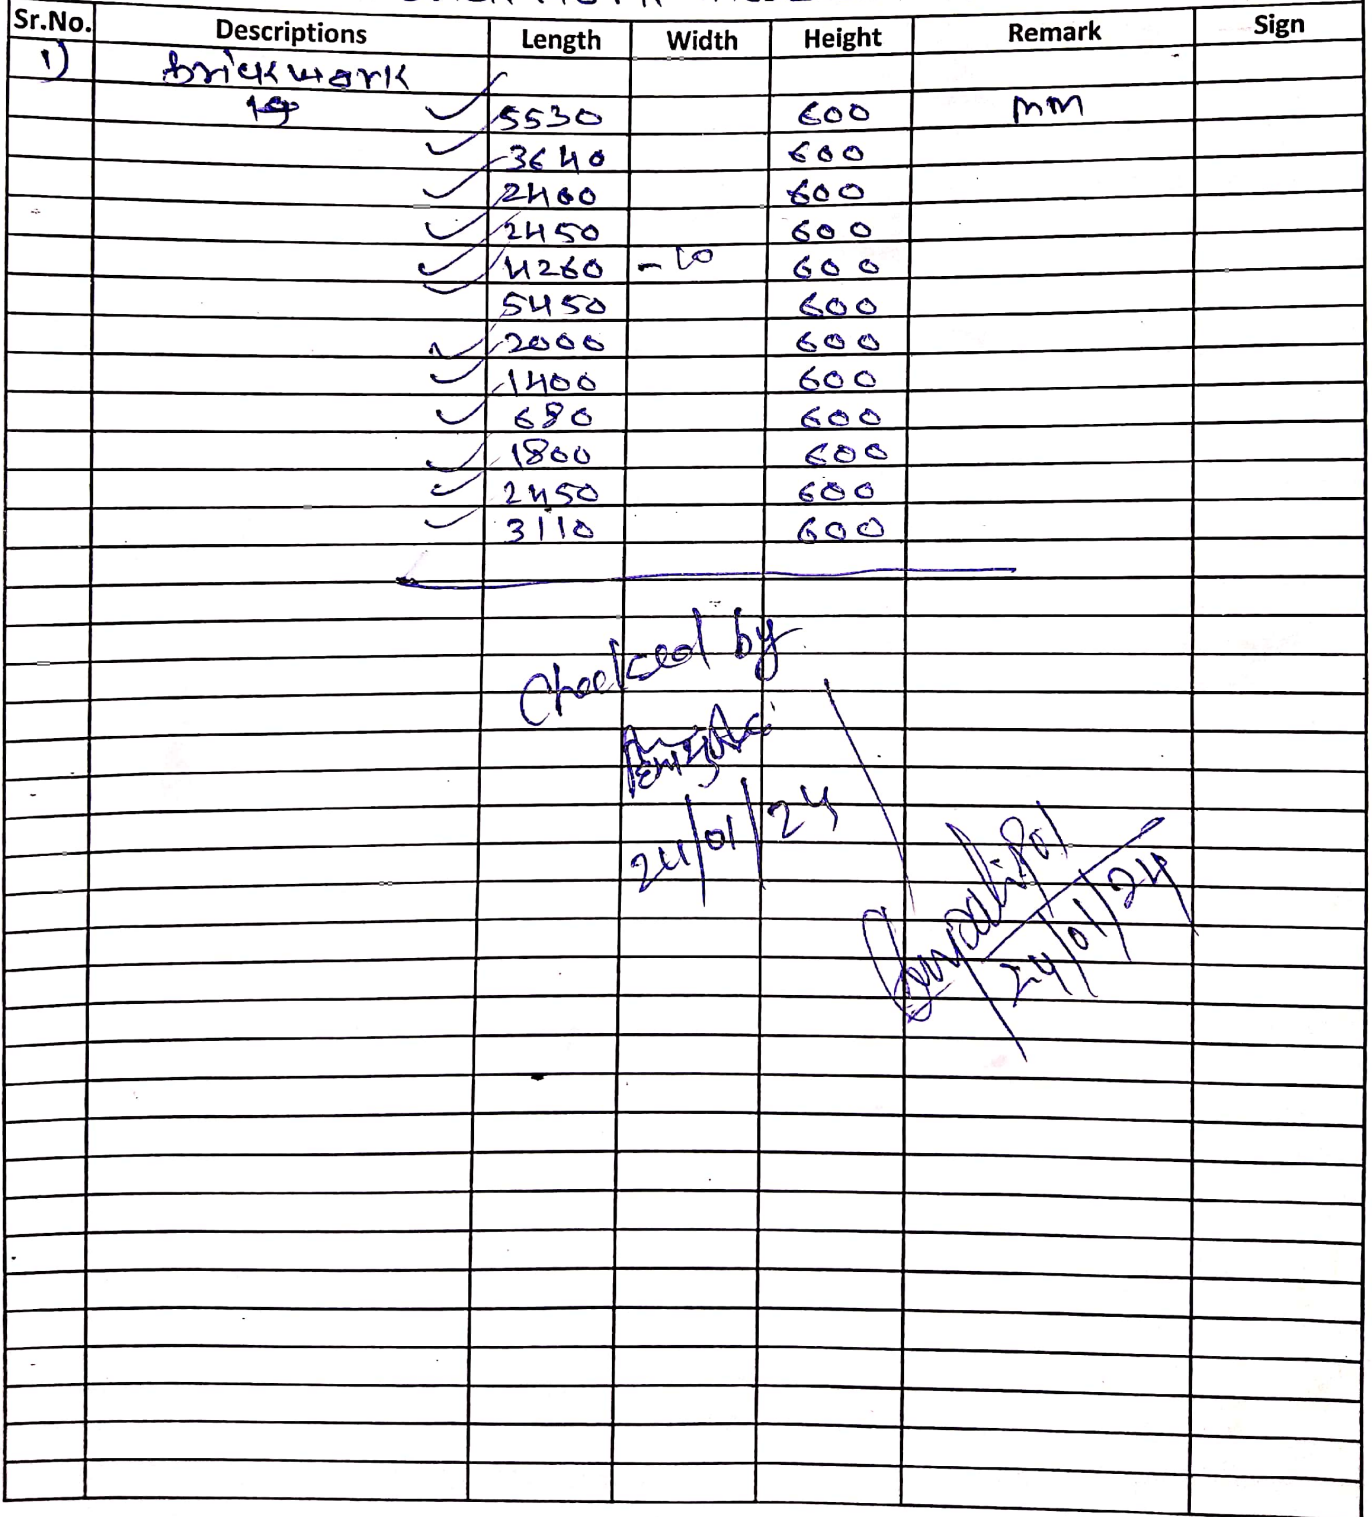 Sr.No. Descriptions Length Width Height Remark Sign
1) brickwork
5530 600 mm
3640 600
2400 600
2450 600
4260 - 10 600
5450 600
2000 600
1400 600
680 600
1800 600
2450 600
3110 600
Checked by
24/01/24
24/01/24